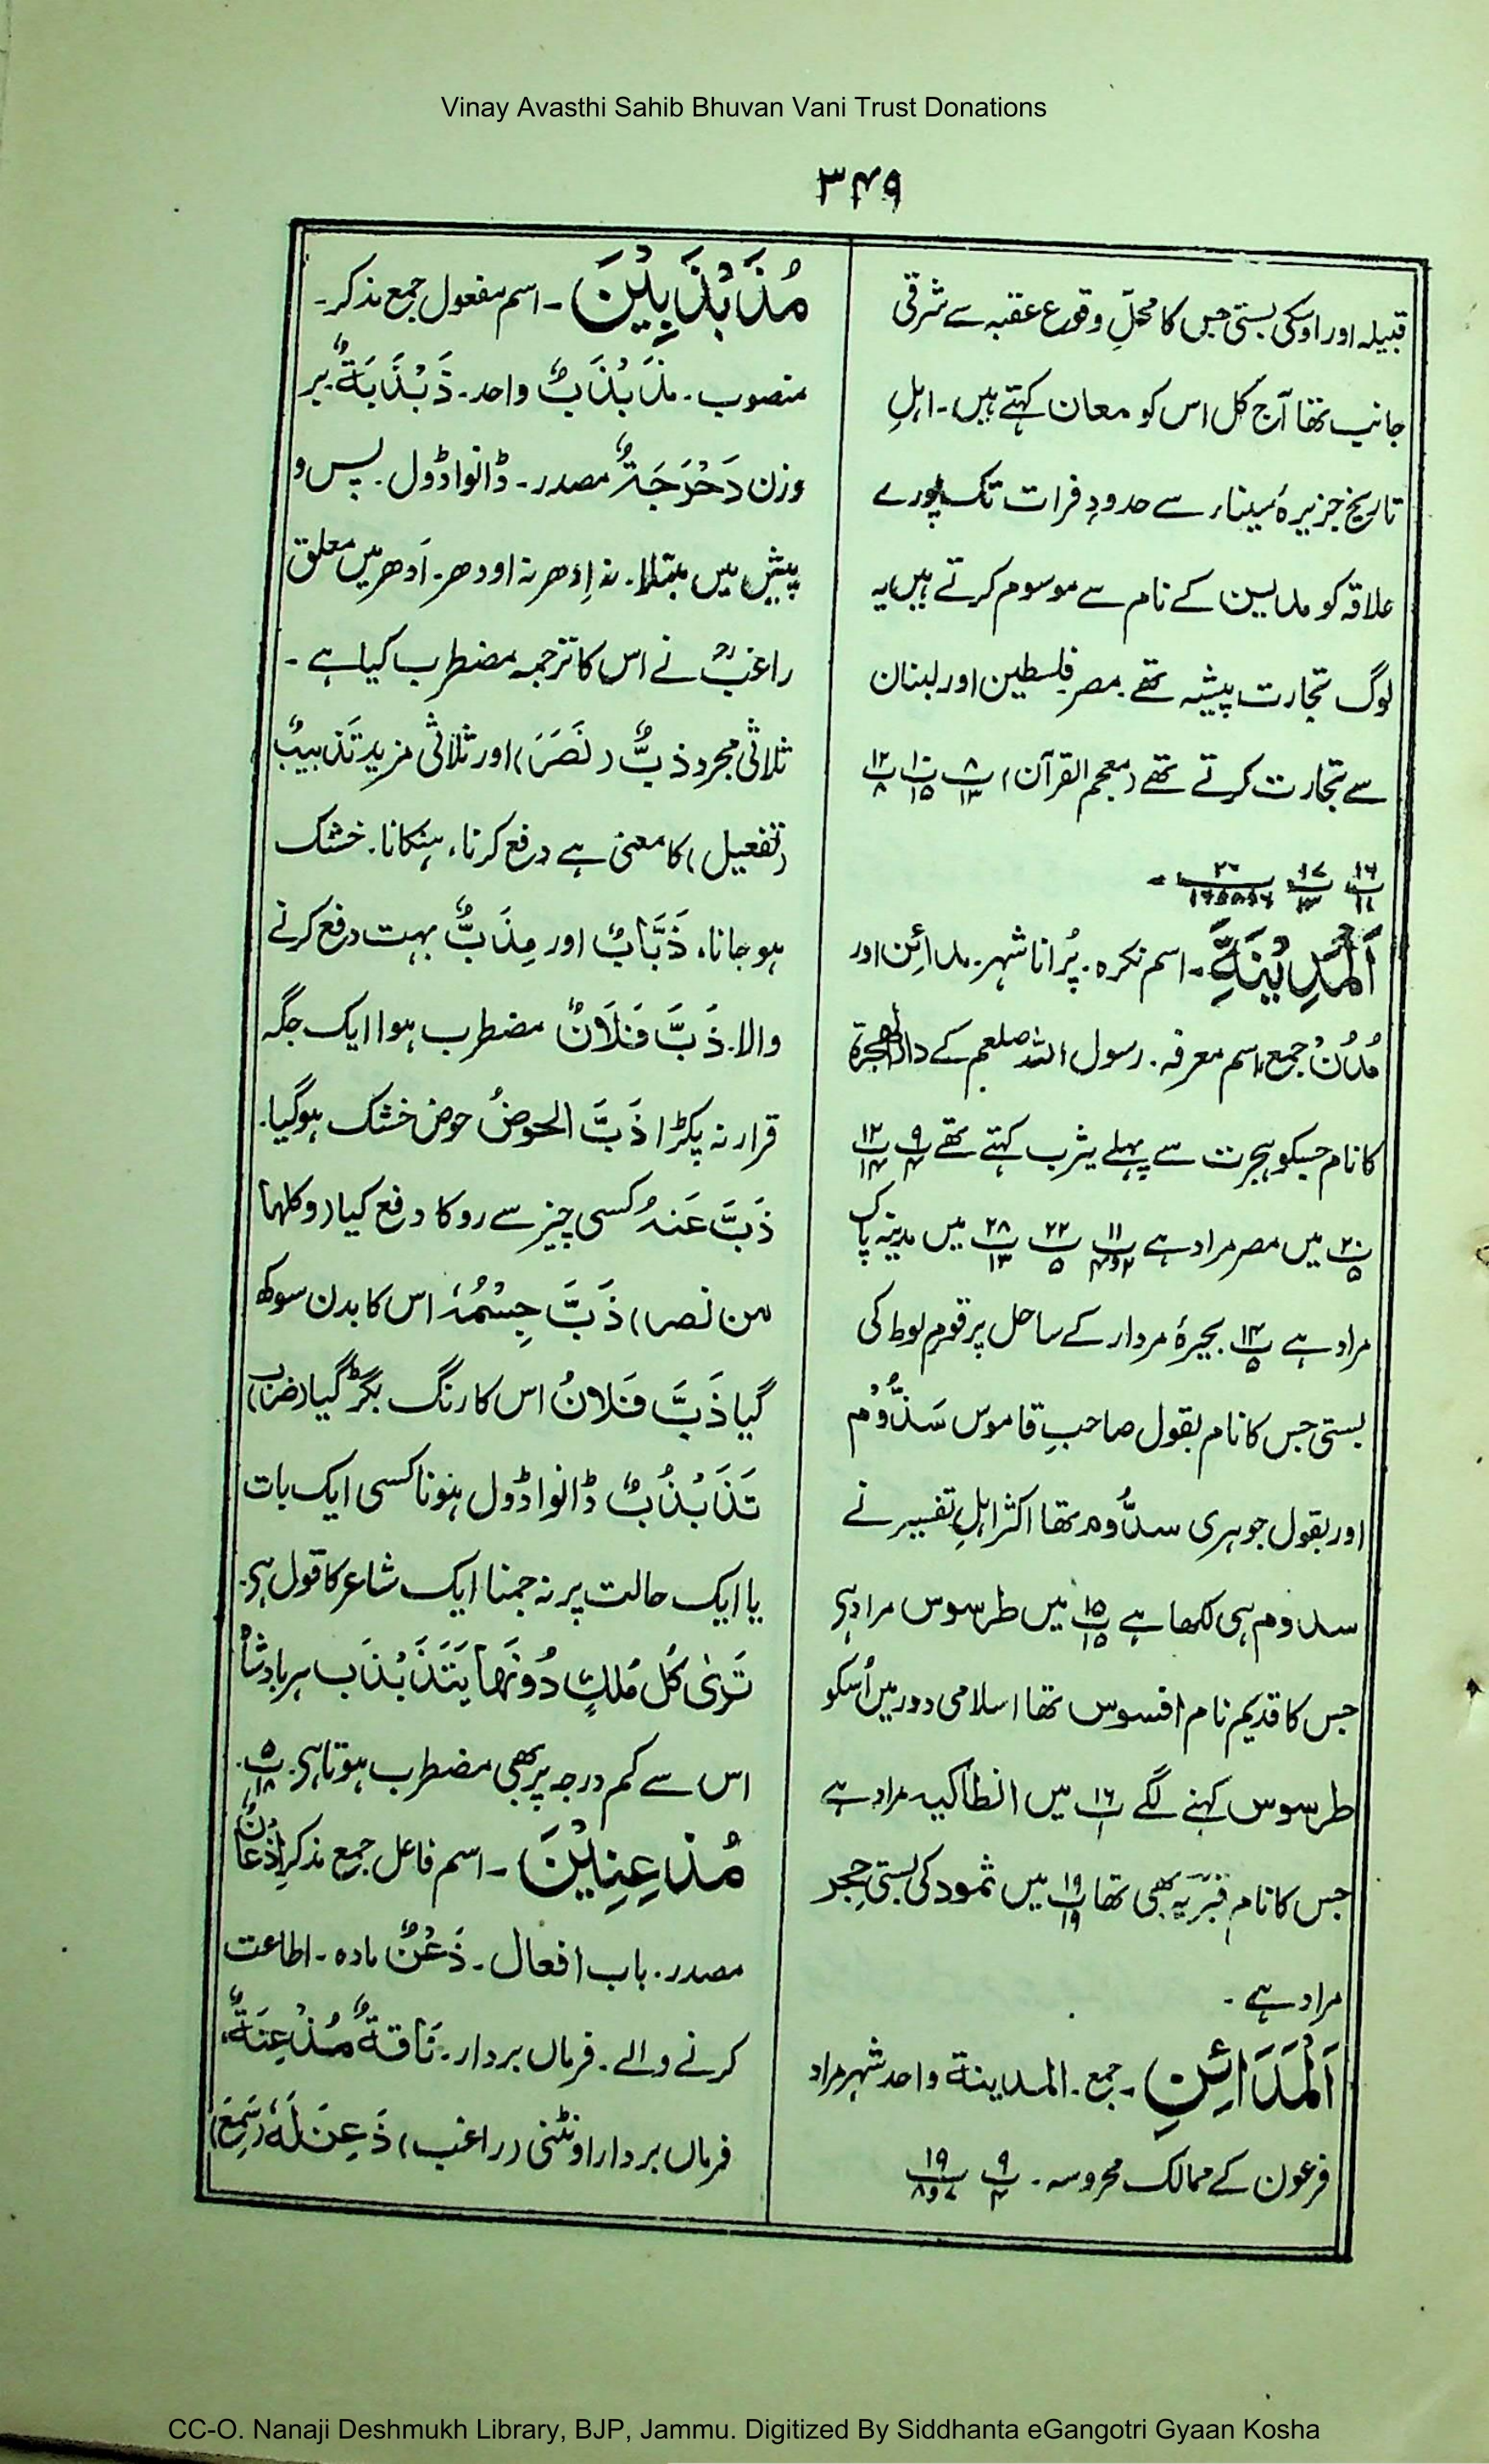 Vinay Avasthi Sahib Bhuvan Vani Trust Donations
۳۴۹
قبیلہ اور اوسکی بستی جس کا محلِّ وقوع عقبہ سے شرقی
جانب تھا آج کل اس کو معان کہتے ہیں۔ اہلِ
تاریخ جزیرۂ سیناء سے حدودِ فرات تک پورے
علاقہ کو مدین کے نام سے موسوم کرتے ہیں یہ
لوگ تجارت پیشہ تھے مصر فلسطین اور لبنان
سے تجارت کرتے تھے (معجم القرآن) پ۸/۱۳ پ۱۰/۱۵ پ۱۲/۸
پ۱۶/۱۱ پ۱۷/۱۳ پ۲۰ ۔
اَلْمَدِيْنَةِ۔ اسم نکرہ۔ پُرانا شہر۔ مدائِن اور
مُدُنْ جمع اسم معرفہ۔ رسول اللہ صلعم کے دارالہجرۃ
کا نام جسکو ہجرت سے پہلے یثرب کہتے تھے پ۹/۴ پ۱۲/۱۴
پ۲۰/۵ میں مصر مراد ہے پ۱۱/۲و۴ پ۲۲/۵ پ۲۸/۱۳ میں مدینہ پاک
مراد ہے پ۱۴/۵ بحیرۂ مردار کے ساحل پر قومِ لوط کی
بستی جس کا نام بقول صاحبِ قاموس سَذُّوْم
اور بقول جوہری سدُّوم تھا اکثر اہلِ تفسیر نے
سدوم ہی لکھا ہے پ۱۵/۱۵ میں طرسوس مراد ہی
جس کا قدیم نام افسوس تھا اسلامی دور میں اُسکو
طرسوس کہنے لگے پ۱۶/۱ میں انطاکیہ مراد ہے
جس کا نام بھی تھا پ۱۹/۱۹ میں ثمود کی بستی حِجر
مراد ہے۔
اَلْمَدَائِنِ۔ جمع۔ المدینۃ واحد شہر مراد
فرعون کے ممالک محروسہ۔ پ۹/۴ پ۱۹/۷و۸
مُذَبْذَبِيْنَ۔ اسم مفعول جمع مذکر۔
منصوب۔ مذَبْذَبٌ واحد۔ ذَبْذَبَةٌ بر
وزن دَحْرَجَةٌ مصدر۔ ڈانواڈول۔ پس و
پیش میں مبتلا۔ نہ اِدھر نہ اودھر۔ اَدھر میں معلق
راغبؒ نے اس کا ترجمہ مضطرب کیا ہے۔
ثلاثی مجرد ذبٌّ (نَصَرَ) اور ثلاثی مزید تَذبیبٌ
(تفعیل) کا معنی ہے دفع کرنا، ہنکانا۔ خشک
ہو جانا، ذَبَّابٌ اور مِذَبٌّ بہت دفع کرنے
والا۔ ذَبَّ فَلَانٌ مضطرب ہوا ایک جگہ
قرار نہ پکڑا ذَبَّ الحوضُ حوض خشک ہوگیا۔
ذَبَّ عَنہُ کسی چیز سے روکا دفع کیا (وکلہا
من نصر) ذَبَّ جِسْمُہٗ اس کا بدن سوکھ
گیا ذَبَّ فَلانٌ اس کا رنگ بگڑ گیا (ضرب)
تَذَبْذُبٌ ڈانواڈول ہونا کسی ایک بات
یا ایک حالت پر نہ جمنا ایک شاعر کا قول ہی۔
تَریٰ کُل مَلکٍ دُونَہَا یَتَذَبْذَب ہر بادشاہ
اس سے کم درجہ پر بھی مضطرب ہوتا ہی۔ پ۵/۱۸۔
مُذْعِنِيْنَ۔ اسم فاعل جمع مذکر اِذْعَانٌ
مصدر۔ باب افعال۔ ذَعْنٌ مادہ۔ اطاعت
کرنے والے۔ فرماں بردار۔ نَاقةٌ مُذْعِنَةٌ،
فرماں بردار اونٹنی (راغب) ذَعِنَ لَہٗ (سَمِعَ)
CC-O. Nanaji Deshmukh Library, BJP, Jammu. Digitized By Siddhanta eGangotri Gyaan Kosha